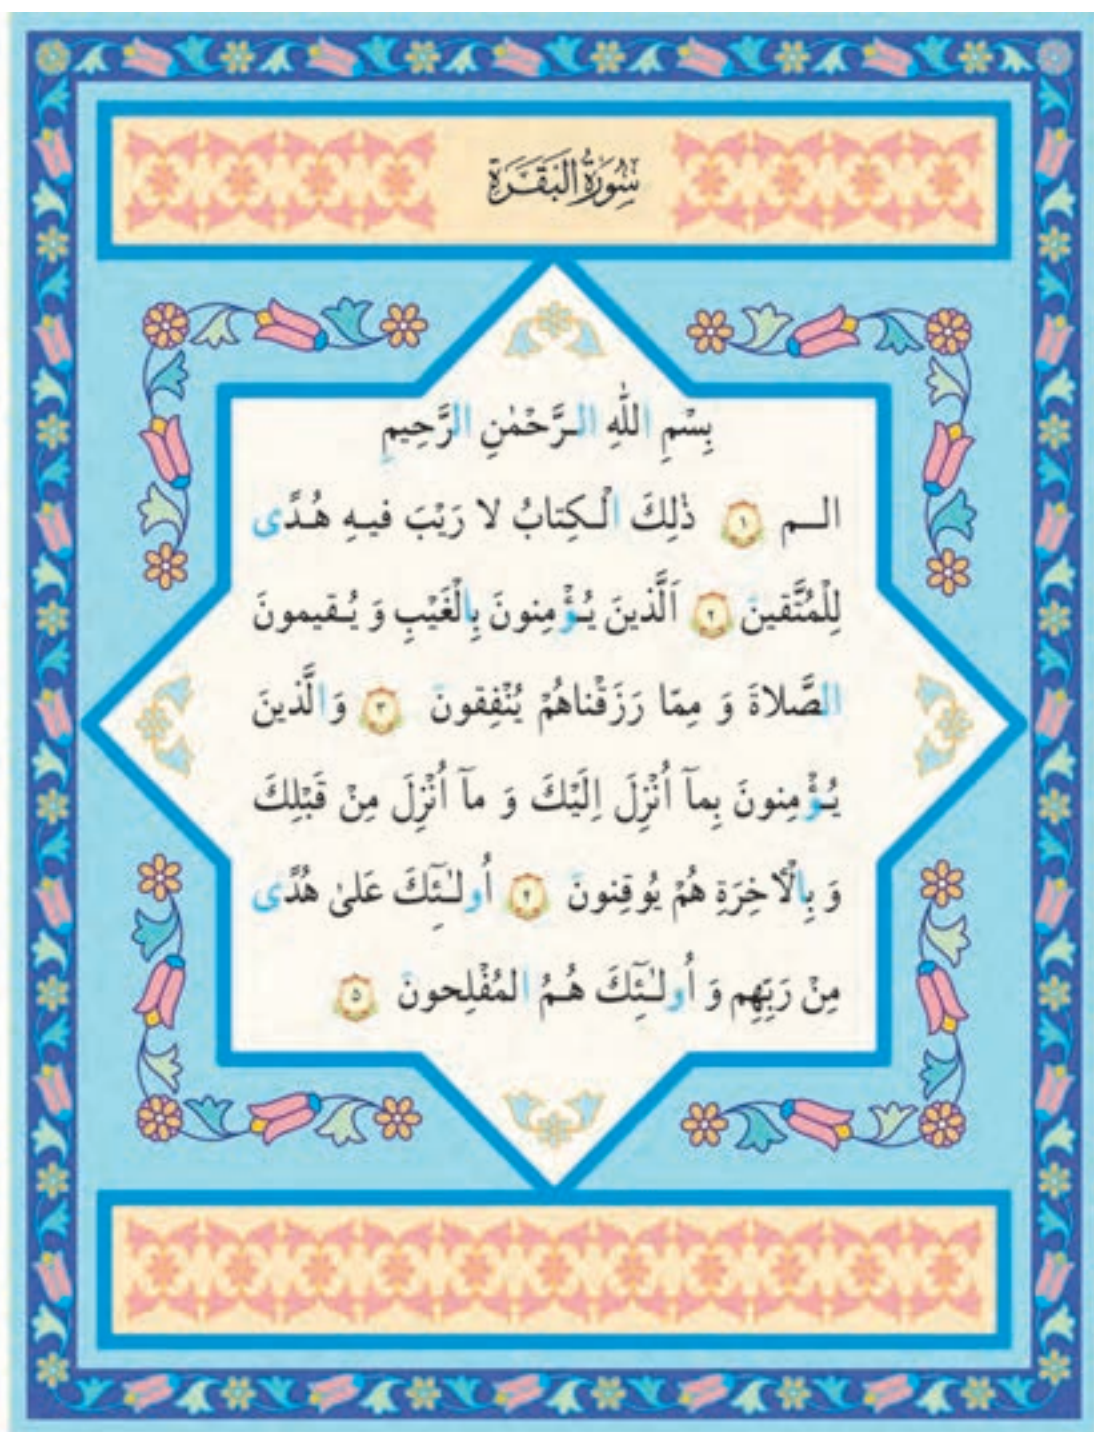 سُورَةُ الْبَقَرَةِ
بِسْمِ اللّٰهِ الـرَّحْمٰنِ الرَّحِیمِ
الــم ۝۱ ذٰلِكَ الْـكِتابُ لا رَیْبَ فیـهِ هُـدًى
لِلْمُتَّقینَ ۝۲ اَلَّذینَ یُـؤْمِنونَ بِالْغَیْبِ وَ یُـقیمونَ
الصَّلاةَ وَ مِمّا رَزَقْناهُمْ یُنْفِقونَ ۝۳ وَالَّذینَ
یُـؤْمِنونَ بِمآ اُنْزِلَ اِلَیْكَ وَ مآ اُنْزِلَ مِنْ قَبْلِكَ
وَ بِالْاٰخِرَةِ هُمْ یُوقِنونَ ۝۴ اُولـٰٓئِكَ عَلىٰ هُدًى
مِنْ رَبِّهِم وَ اُولـٰٓئِكَ هُـمُ المُفْلِحونَ ۝۵